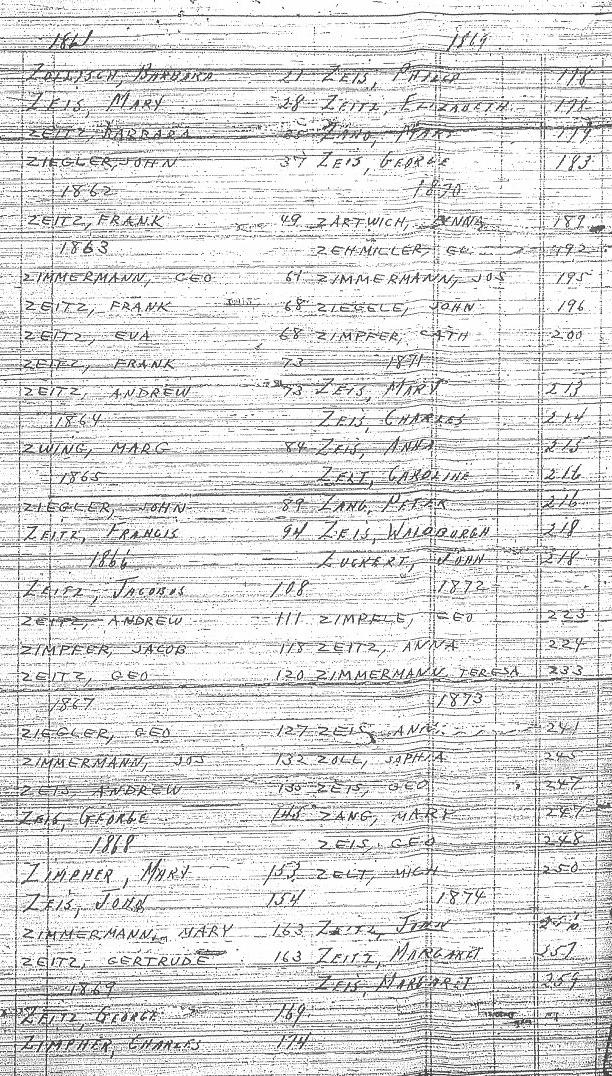 1861
ZOLLISCH, BARBARA 21
ZEIS, MARY 28
ZEITZ, BARBARA
ZIEGLER, JOHN 37
1862
ZEITZ, FRANK 49
1863
ZIMMERMANN, GEO 61
ZEITZ, FRANK 68
ZEITZ, EVA 68
ZEITZ, FRANK 73
ZEITZ, ANDREW 73
1864
ZWING, MARG 84
1865
ZIEGLER, JOHN 89
ZEITZ, FRANCIS 94
1866
ZEITZ, JACOBUS 108
ZEITZ, ANDREW 111
ZIMPFER, JACOB 118
ZEITZ, GEO 120
1867
ZIEGLER, GEO 127
ZIMMERMANN, JOS 132
ZEIS, ANDREW 135
ZEIS, GEORGE 145
1868
ZIMPHER, MARY 153
ZEIS, JOHN 154
ZIMMERMANN, MARY 163
ZEITZ, GERTRUDE 163
1869
ZEITZ, GEORGE 169
ZIMPHER, CHARLES 174
1869
ZEIS, PHILIP 178
ZEITZ, ELIZABETH
ZANG, MARY 179
ZEIS, GEORGE 183
1870
ZARTWICH, ANNA 189
ZEHMILLER, GEO 192
ZIMMERMANN, JOS 195
ZIEGELE, JOHN 196
ZIMPFER, CATH 200
1871
ZEIS, MARY 213
ZEIS, CHARLES 214
ZEIS, ANNA 215
ZELT, CAROLINE 216
ZANG, PETER 216
ZEIS, WALDBURGH 218
ZUCKERT, JOHN 218
1872
ZIMPELE, GEO 223
ZEITZ, ANNA 224
ZIMMERMANN, TERESA 233
1873
ZEIS, ANN 241
ZOLL, SOPHIA 245
ZEIS, GEO 247
ZANG, MARY 247
ZEIS, GEO 248
ZELT, MICH 250
1874
ZEITZ, JOHN
ZEITZ, MARGARET 257
ZEIS, MARGARET 259